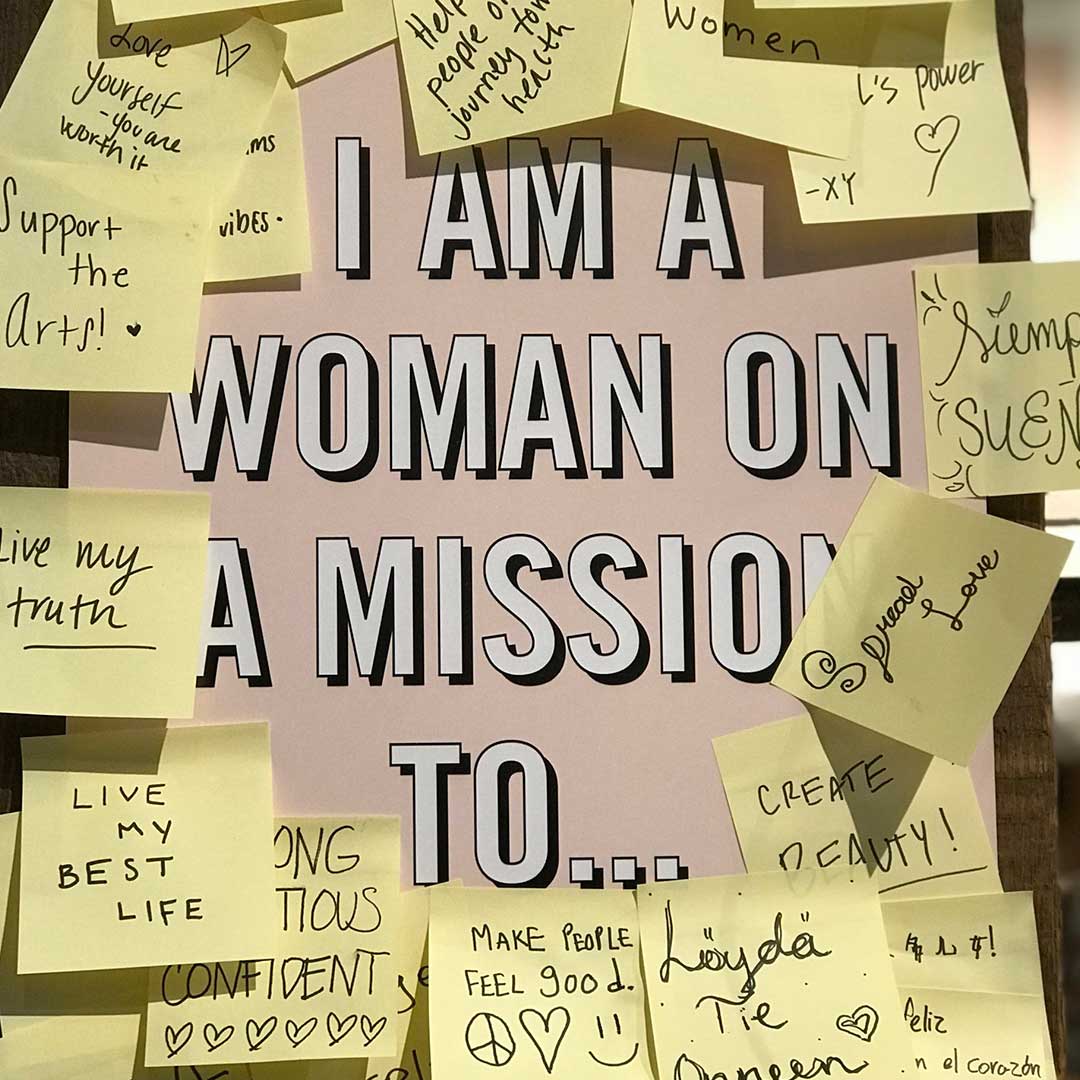 Love
yourself
- you are
worth it
Help
people o
journey tow
health
Women
L's power
-XY
ms
vibes.
Support
the
Arts!
I AM A
WOMAN ON
A MISSION
TO...
Siemp
SUEÑ
Live my
truth
Spread
Love
LIVE
MY
BEST
LIFE
ONG
TIOUS
CONFIDENT
CREATE
BEAUTY!
MAKE PEOPLE
FEEL good.
Löydä
Tie
Onneen
Feliz
n el corazón